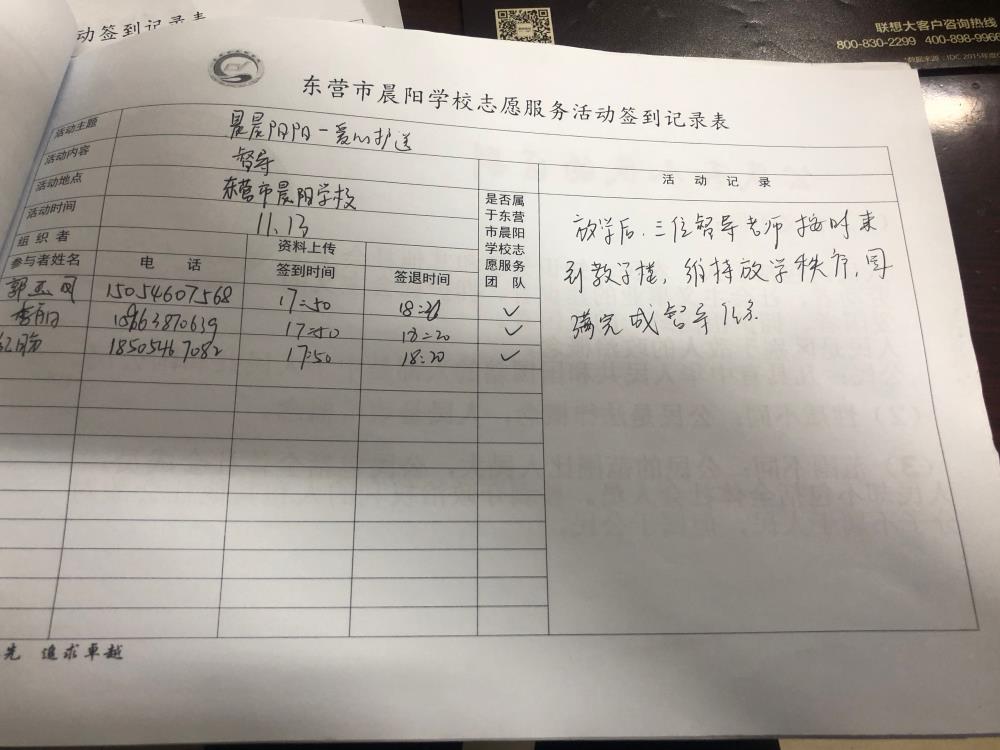 动签到记录表
联想大客户咨询热线
800-830-2299 400-898-9966
东营市晨阳学校志愿服务活动签到记录表
活动主题 晨晨阳阳-爱心护送
活动内容 督导
活动地点 东营市晨阳学校
活动时间 11.13
组织者 资料上传
是否属于东营市晨阳学校志愿服务团队
活动记录
参与者姓名 电话 签到时间 签退时间
15054607568 17:50 18:20 ✓
李阳 18663870639 17:50 18:20 ✓
18505467082 17:50 18:20 ✓
放学后,三位督导老师按时来
到教学楼,维持放学秩序,圆
满完成督导任务
先 追求卓越